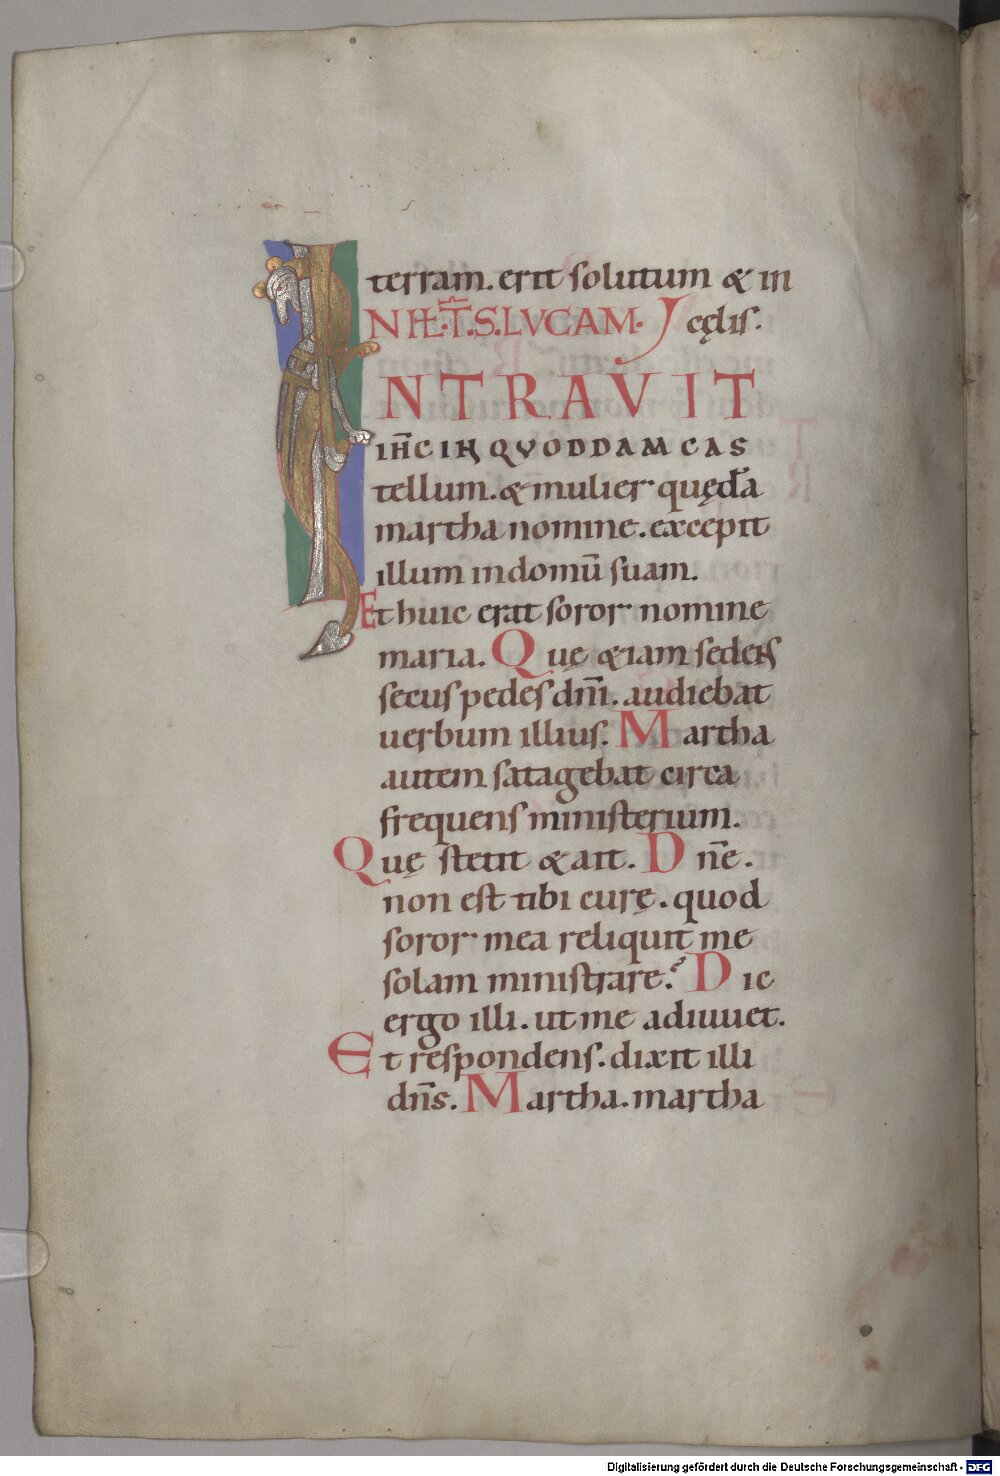 terram. erit solutum & in
INITIŪ. S. LVCAM. cęlis.
INTRAVIT
IHC IN QVODDAM CAS
tellum. & mulier quędā
martha nomine. excepit
illum in domū suam.
Et huic erat soror nomine
maria. Quę &iam sedens
secus pedes dn̄i. audiebat
uerbum illius. Martha
autem satagebat circa
frequens ministerium.
Quę stetit & ait. Dn̄e.
non est tibi curę. quod
soror mea reliquit me
solam ministrare? Dic
ergo illi. ut me adiuuet.
Et respondens. dixit illi
dn̄s. Martha. martha
Digitalisierung gefördert durch die Deutsche Forschungsgemeinschaft - DFG